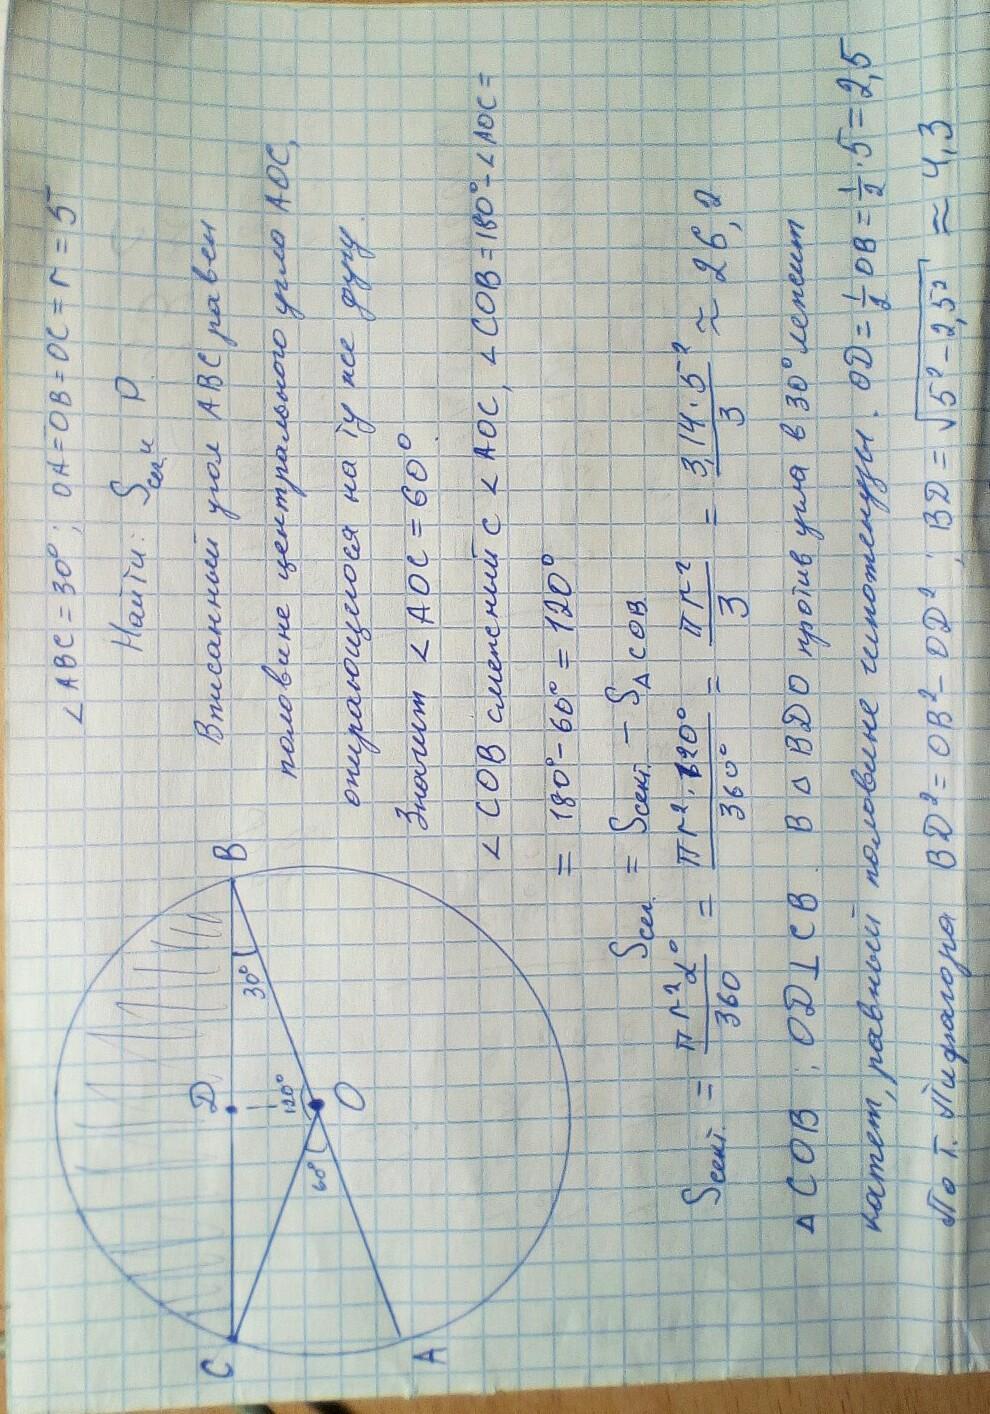 ∠ABC = 30°; OA = OB = OC = r = 5
Найти: Sсег и P
Вписанный угол ABC равен
половине центрального угла AOC,
опирающегося на ту же дугу.
Значит ∠AOC = 60°.
∠COB смежный с ∠AOC, ∠COB = 180° - ∠AOC =
= 180° - 60° = 120°
Sсег. = Sсект. - S△COB
Sсект. = πr²α°/360 = πr²·120°/360° = πr²/3 = 3,14·5²/3 ≈ 26,2
△COB: OD⊥CB. В △BDO против угла в 30° лежит
катет, равный половине гипотенузы. OD = 1/2 OB = 1/2·5 = 2,5
По т. Пифагора BD² = OB² - OD²; BD = √5² - 2,5² ≈ 4,3
C
D
B
30°
120°
60°
O
A